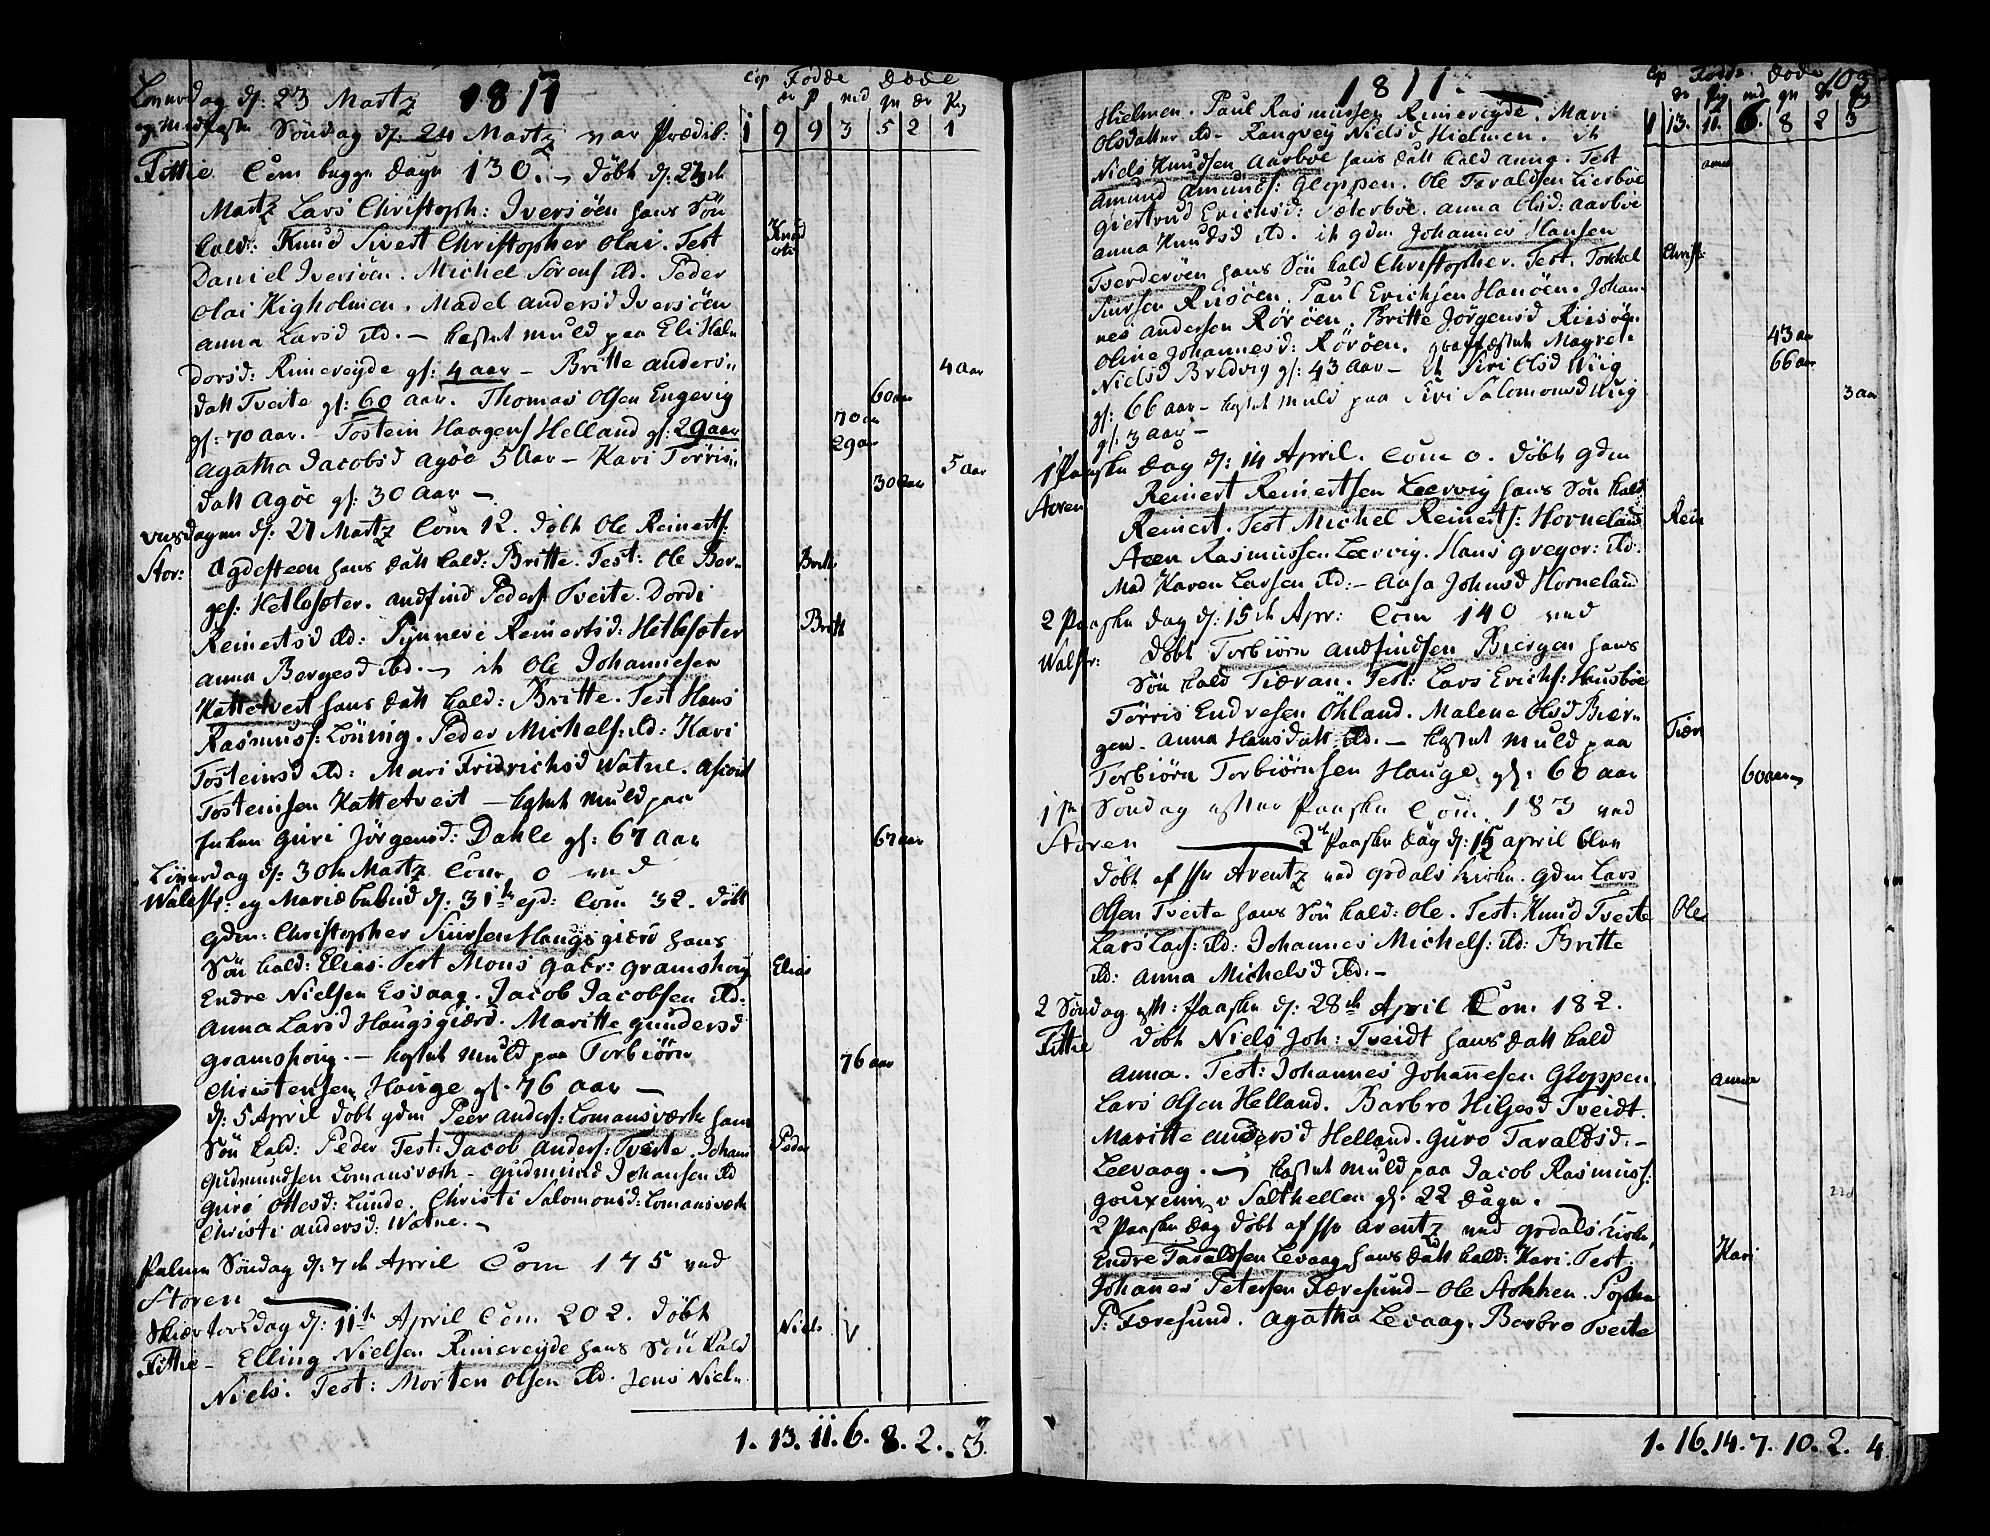 1811
Cop Födde Døde
dr p md qu dr Pig
1 9 9 3 5 2 1
Löuerdag d: 23 Martz
og Midfaste Söndag d: 24 Martz var Prædik:
Fittie Com begge dage 130. – döbt d: 24de
Martz Lars Christoph: Iversöen hans Sön
kald: Knud Sivert Christopher Olai. Test
Daniel Iversöen. Michel Sörens ibd. Peder
Olai Kigholmen. Madel Andersd Iversöen
Anna Larsd ibd. – kastet muld paa Eli Hal-
dorsd: Rimereyde gl: 4 aar – Britte Anders-
datt Tveite gl: 60 aar. Thomas Olsen Engevig
gl: 70 aar. – Tostein Haagens Helland gl: 29 aar
Agatha Jacobsd Agöe 5 Aar – Kari Törris-
datt Agöe gl: 30 Aar –
Onsdagen d: 27 Martz Com 12. döbt Ole Reinerts:
Stor: Agdesteen hans datt kald: Britte. Test: Ole Ber-
ges: Hetlesæter. Andfind Peders Tveite. Dordi
Reinertsd ibd: Synneve Reinertsd: Hetlesæter
Anna Bergesd ibd. – it Ole Johannesen
Kattetveit hans datt kald: Britte. Test Hans
Rasmuss: Lönnig. Peder Michels: ibd: Kari
Tosteinsd ibd: Mari Fridrichsd Watne. Asioul
Tosteinsen Kattetveit – kastet muld paa
Enken Guri Jörgensd: Dahle gl: 67 aar
Löuerdag d: 30te Martz Com 0 ved
Walestr: og Mariæ budskab d: 31te ejd: Com 32. döbt
Gdm: Christopher Siursen Haugsgierd hans
Sön kald: Elias. Test Mons Gabr: Gramshoug
Endre Nielsen Esvaag. Jacob Jacobsen ibd:
Anna Larsd Haugsgierd. Maritte Gundersd
Gramshoug. – kastet muld paa Torbiörn
Christensen Hauge gl. 76 aar –
d: 5 April döbt gdm Peer Anders: Lomansværk hans
Sön kald: Peder Test: Jacob Anders: Tveite. Johans
Gudmundsen Lomansværk – Gudmund Johansen ibd
Guri Ottesd: Lunde. Christi Salomonsd: Lomansværk
Christi Andersd: Watne. –
Palme Söndag d: 7de April Com 175 ved
Storen
Skiertorsdag d: 11te April Com 202. döbt
Fittie – Elling Nielsen Rimereyde hans Sön kald
Niels. Test: Morten Olsen ibd. Jens Niels-
Knud
4 Aar
60 aar
70 aar
29 aar
5 Aar
30 Aar
Britte
Britt
67 aar
Elias
76 aar
Peder
Niels
1. 13. 11. 6. 8. 2. 3.
1811. 103
Cop Födde Døde
1 13. 11. 6. 8 2 3
Hielmen. Paul Rasmussen Rimereyde. Mari
Olsdatter ibd – Rangvey Nielsd Hielmen. it
Niels Knudsen Aarboe hans datt kald Anna. Test
Amund Amunds: Gloppen. Ole Taraldsen Lierböe
Giertrud Erichsd: Sæterböe. Anna Olsd: Aarböe
Anna Knudsd ibd. it gdm Johannes Hansen
Tverderöen hans Sön kald Christopher. Test. Torkel
Siursen Riisöen. Paul Erichsen Hanöen. Johan-
nes Andersen Rör öen. Britte Jörgensd Riisöen
Oline Johannesd: Röröen. gravfæstet Magret-
Nielsd Bredvig gl: 43 Aar – it Siri Olsd Wiig
gl: 66 aar – kastet muld paa Siri Salomonsd Wiig
gl: 3 aar –
1 Paaske Dag d: 14 April. Com 0. döbt gdm
Storen Reinert Reinertsen Leervig hans Sön kald
Reinert. Test Michel Reinerts: Horneland
Aeen Rasmussen Leervig. Hans Gregor: ibd:
Mad Karen Larsen ibd: – Aasa Johnsd Horneland
2 Paaske dag d: 15de Apr: Com 140 ved
Walestr: döbt Torbiörn Andfindsen Biergen hans
Sön kald Tiæran. Test: Lars Erichs: Huusböe
Törris Endresen Öhland. Malene Olsd Bier-
gen. Anna Hansdatt ibd. – kastet muld paa
Torbiörn Torbiörnsen Hauge. gl: 60 aar
1ste Söndag efter Paaske Com. 183 ved
Storen – 2de Paaske Dag d: 15 April blev
döbt af Hr Arentz ved Opdals kirke. gdm Lars
Olsen Tveite hans Sön kald: Ole. Test: Knud Tveite
Lars Lars: ibd: Johannes Michels: ibd: Britte
ibd: Anna Michelsd ibd: –
2 Söndag eft: Paaske d: 28de April Com. 182.
Fittie döbt Niels Joh: Tveidt hans datt kald
Anna. Test: Johannes Johañesen Gloppen.
Lars Olsen Helland. Barbro Hilgesd Tveidt.
Maritte Andersd Helland. Guro Taraldsd: –
Leevaag. – kastet muld paa Jacob Rasmuss:
v Salthellen gl: 22 Dage. –
2 Paaske Dag döbt af Hr Arentz ved Opdals kirke
Endre Taraldsen Levaag hans datt kald: Kari. Test:
Johañes Petersen Færesund – Ole Stokken. Sophia
P: Færesund. Agatha Levaag. Barbro Tveite
Anna
Christ:
43 aar
66 aar
3 aar
Rein
Tiær
60 aar
Ole
Anna
22 d
Kari
1. 16. 14. 7. 10. 2. 4